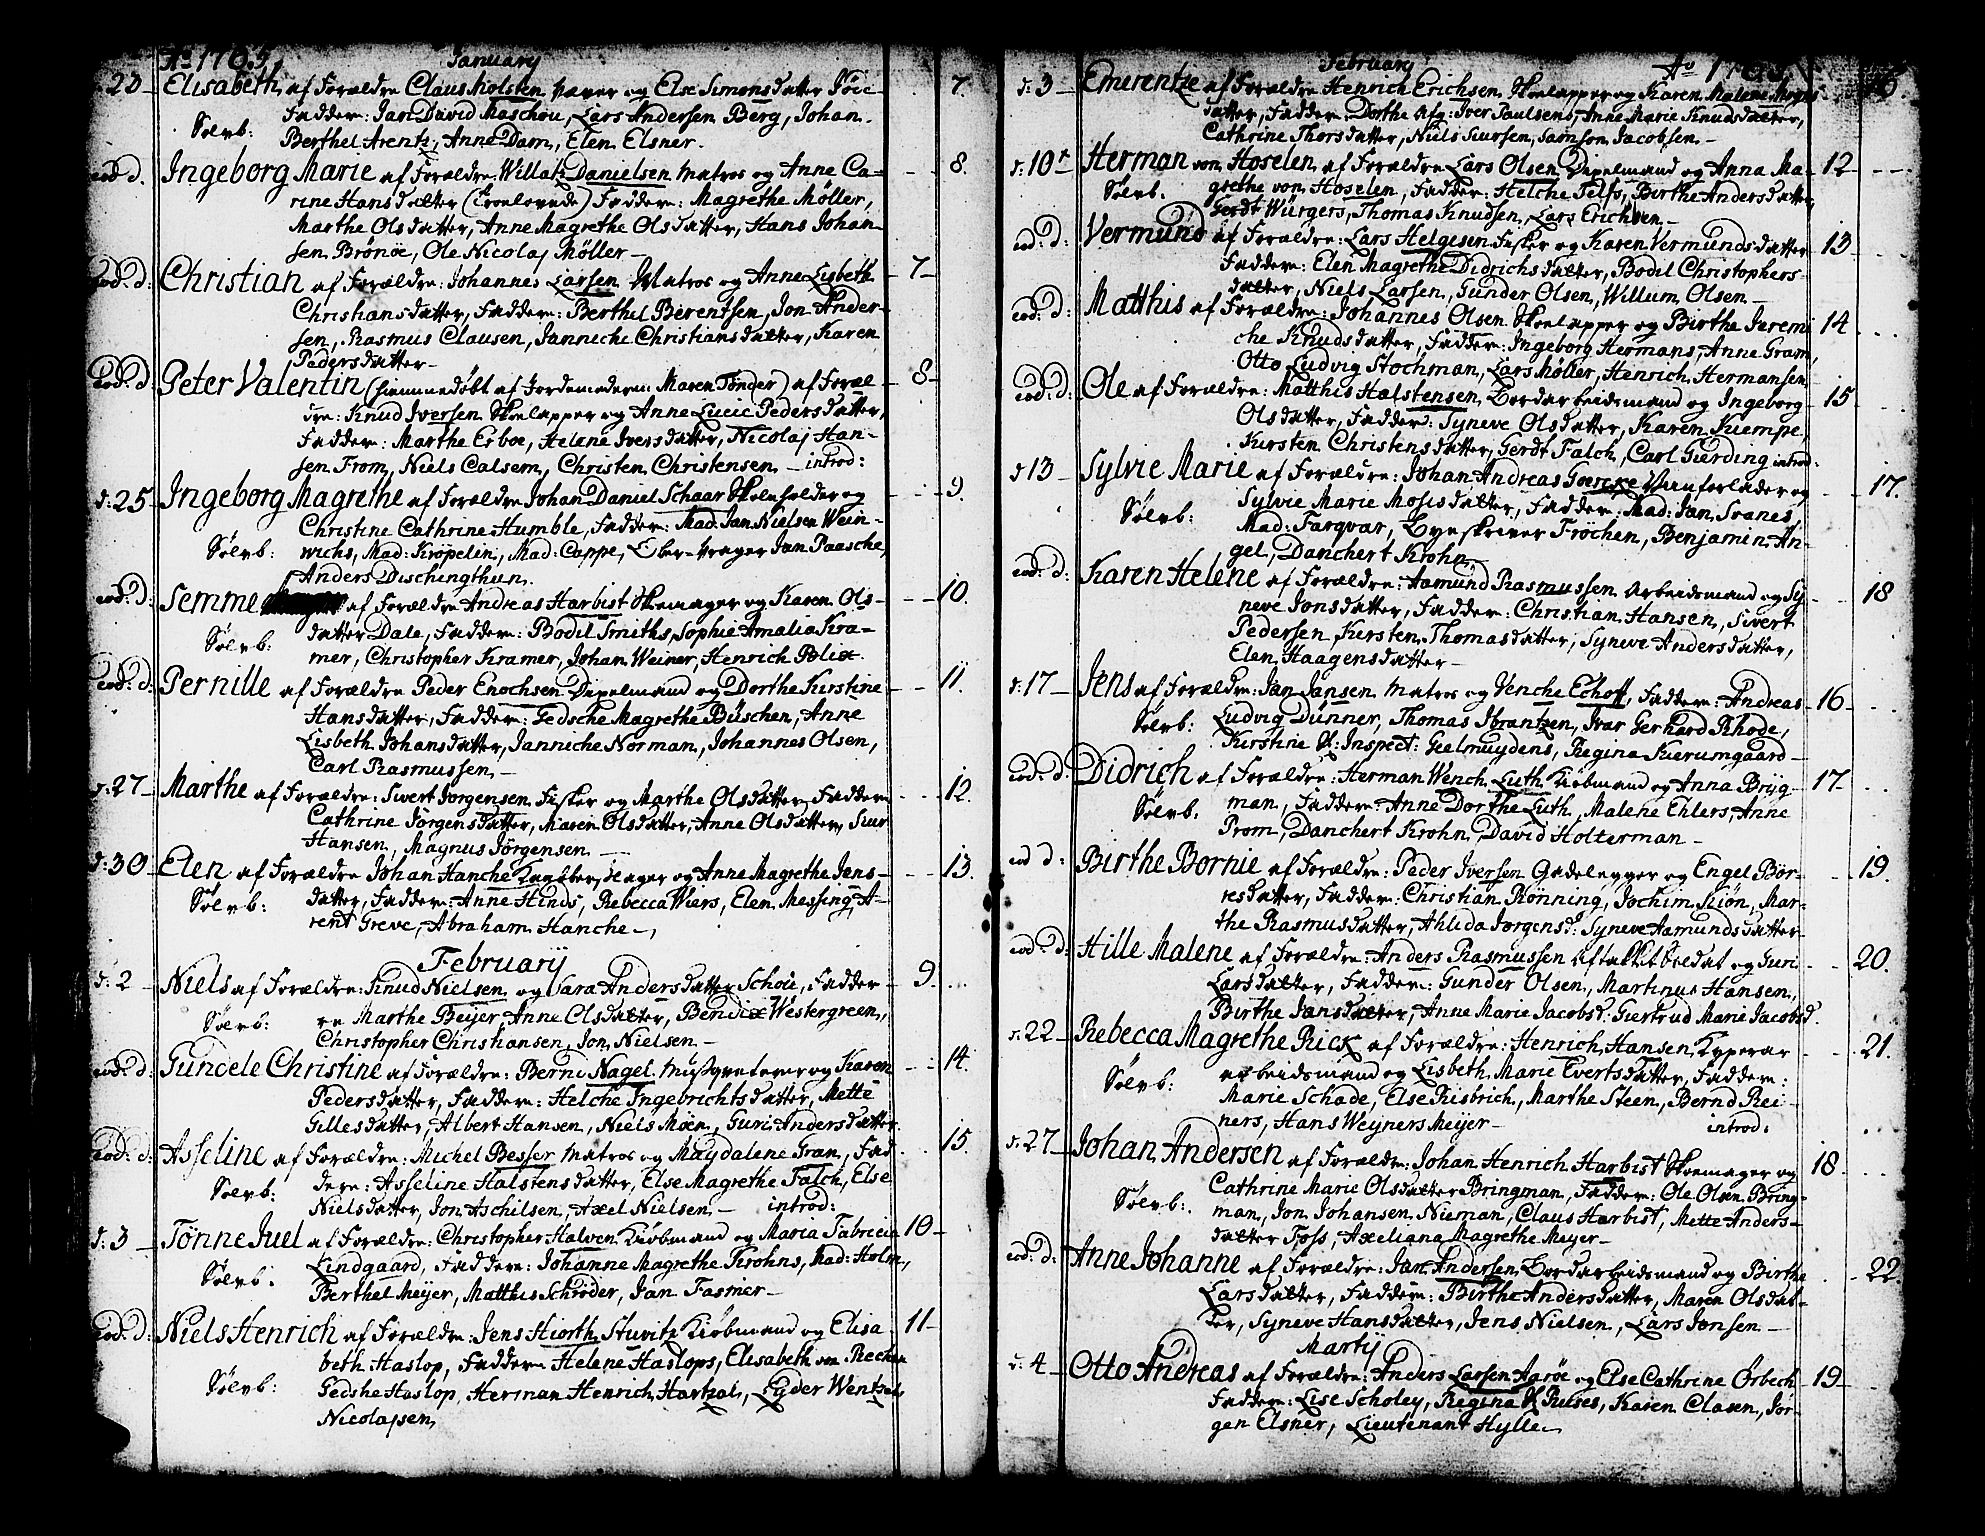 Ao 1765. January
23 Elisabeth af Forældre Claus Holsten Væver og Else Simonsdatter Föie 7.
Faddere: Jan David Maschou, Lars Andersen Berg, Johan
Sölvb: Berthel Arentz, Anne Dam, Elen Elsner.
eod. d. Ingeborg Marie af Forældre Willats Danielsen Matros og Anne Ca- 8.
rine Hansdatter (Troelovede) Faddere: Magrethe Møller,
Marthe Olsdatter, Anne Magrethe Olsdatter, Hans Johan-
sen Brönöe, Ole Nicolaj Møller
eod: d: Christian af Forældre: Johannes Larsen Matros og Anne Lisbeth 7
Christiansdatter, Faddere: Berthel Berentsen, Jon Ander-
sen, Rasmus Clausen, Janniche Christiansdatter, Karen
Pedersdatter
eod: d Peter Valentin (hiemmedöbt af Jordemoderen: Maren Tönder) af Foræl- 8
dre: Knud Iversen Skoelapper og Anne Lucie Pedersdatter,
Faddere: Marthe Erboe, Helene Iversdatter, Nicolaj Han-
sen From, Niels Calsem, Christen Christensen introd:
d: 25 Ingeborg Magrethe af Forældre Johan Daniel Schaar Skoleholder og 9.
Christine Cathrine Humble, Faddere: Mad: Jan Nielsen Wein-
Sölvb: wichs, Mad: Kröpelin, Mad: Cappe, Ober-Vrager Jan Paasche,
Anders Dischingthun.
eod: d: Semme af Forældre Andreas Harbist Skomager og Karen Ols- 10.
datter Dale, Faddere: Bodil Smiths, Sophie Amalia Kra-
Sölvb: mer, Christopher Kramer, Johan Weiner, Henrich Polix.
eod: d: Pernille af Forældre Peder Enochsen Dregelmand og Dorthe Kirstine 11.
Hansdatter, Faddere: Gedsche Magrethe Büschen, Anne
Lisbeth Johansdatter, Janniche Norman, Johannes Olsen,
Carl Rasmussen
d: 27 Marthe af Forældre: Sivert Jörgensen Fisker og Marthe Olsdatter Faddere 12.
Cathrine Jörgensdatter, Maren Olsdatter, Anne Olsdatter, Siur
Hansen, Magnus Jörgensen
d: 30 Elen af Forældre Johan Hanche og Anne Magrethe Jens- 13.
Sölvb: datter, Faddere: Anne Hinds, Rebecca Wiers, Elen Messing, A-
rent Greve, Abraham Hanche
February
d: 2 Niels af Forældre: Knud Nielsen og Sara Andersdatter Schou, Fadde- 9
Sölvb: re Marthe Beyer Anne Olsdatter, Bendix Westergreen,
Christopher Christiansen, Jon Nielsen
eod: d: Gundele Christine af Forældre: Bernt Nagel Musqveterer og Karen 14.
Pedersdatter, Faddere: Helche Ingebrichtsdatter, Mette
Gillesdatter, Albert Hansen, Niels Möen, Guri Andersdatter
eod: d: Asseline af Forældre: Michel Besser Matros og Magdalene Gran, Fad- 15.
Sölvb: dere: Asseline Halstensdatter, Else Magrethe Falch, Else
Nielsdatter, Jon Aschilsen, Axel Nielsen introd:
d: 3 Tönne Juel af Forældre: Christopher Halven Kiöbmand og Maria Fabricia 10
Sölvb: Lindgaard, Faddere: Johanne Magrethe Krohns, Mad: Holm,
Berthel Meijer, Matthis Schröder, Jan Fasmer
eod: d: Niels Henrich af Forældre: Jens Hiorth Stuvitz Kiöbmand og Elisa- 11
beth Haslop, Faddere Helene Haslops, Elisabeth von Rechen
Sölvb: Gedshe Haslop, Herman Henrich Hartzal, Eyder Wentzel
Nicolajsen
February Ao 1765
d: 3 Emerentze af Forældre Henrich Erichsen Skoelapper og Karen Malene Mogns 16.
datter, Faddere: Dorthe Iver Paulsens, Anne Marie Knudsdatter,
Cathrine Thorsdatter, Niels Siursen, Samson Jacobsen
d: 10 Herman von Hoselen af Forældre Lars Olsen Dregelmand og Anna Ma- 12
Sölvb. grethe von Hoselen, Faddere: Helche Telfs, Birthe Andersdatter
Gerdt Würgers, Thomas Knudsen, Lars Erichsen
eod: d: Vermund af Forældre: Lars Helgesen Fisker og Karen Vermundsdatter 13
Faddere: Elen Magrethe Didrichsdatter, Bodil Christophers-
datter, Niels Larsen, Gunder Olsen, Willum Olsen
eod: d: Matthis af Forældre: Johannes Olsen Skoelapper og Birthe Jaremi 14
che Knudsdatter, Faddere: Ingeborg Hermans, Anne Gram,
Otto Ludvig Stochman, Lars Møller, Henrich Hermansen
eod: d: Ole af Forældre: Matthis Halstensen Bordarbeidsmand og Ingeborg 15
Olsdatter, Faddere: Syneve Olsdatter, Karen Kiempe,
Kirsten Christensdatter, Gerdt Falch, Carl Gierding introd:
d 13 Sylvie Marie af Forældre: Johan Andreas Goercke og 17.
Sölvb: Sylvie Marie Mosisdatter, Faddere: Mad: Jan Svanes
Mad: Farqvar, Byeskriver Fröchen, Benjamin An-
gel, Danchert Krohn
eod: d: Karen Helene af Forældre: Aamund Rasmussen Arbeidsmand og Sy- 18
neve Jonsdatter, Faddere: Christian Hansen, Sivert
Pedersen, Kirsten Thomasdatter, Syneve Andersdatter,
Elen Haagensdatter
d: 17 Jens af Forældre: Jan Jansen Matros og Yenche Echoff, Faddere: Andreas 16
Sölvb: Ludvig Dünner, Thomas Ibrantzen, Ivar Gerhard Rhode,
Kirstine Inspect: Geelmuydens, Regina Kierumgaard
eod: d: Didrich af Forældre: Herman Wench Luth Kiöbmand og Anna Bryg- 17
Sölvb. man, Faddere: Anne Dorthe Luth, Malene Ehlers, Anne
Prom, Danchert Krohn, David Holterman
eod d: Birthe Bornie af Forældre: Peder Iversen Gadelegger og Engel Bör- 19.
resdatter, Faddere: Christian Rönning, Jochim Kiön, Mar-
the Rasmusdatter, Ahlida Jörgensd: Syneve Aamundsdatter
eod: d: Hille Malene af Forældre: Anders Rasmussen aftakket Soldat og Guri 20.
Larsdatter, Faddere: Gunder Olsen, Martinus Hansen,
Birthe Jansdatter, Anne Marie Jacobsd: Giertrud Marie Jacobsd.
d: 22 Rebecca Magrethe Rick af Forældre: Henrich Hansen Kyperar 21.
Sölvb: arbeidsmand og Lisbeth Marie Evertsdatter, Faddere:
Marie Schade, Else Risbrich, Marthe Steen, Bernd Rei-
ners, Hans Weyners Meyer introd:
d: 27 Johan Andersen af Forældre: Johan Henrich Harbist Skoemager og 18
Sölvb: Cathrine Marie Olsdatter Bringman, Faddere: Ole Olsen Bring-
man, Jon Johansen Nieman, Claus Harbist, Mette Anders-
datter Foss, Axeliana Magrethe Meyer
eod: d: Anne Johanne af Forældre: Jan Andersen Bordarbeidsmand og Birthe 22
Larsdatter, Faddere: Birthe Andersdatter, Maren Olsdat-
ter, Syneve Hansdatter, Jens Nielsen, Lars Jonsen
Martij
d: 4 Otto Andreas af Forældre: Anders Larsen Aaröe og Else Cathrine Örbech 19
Faddere: Lise Scholey, Regina Ruises, Karen Clasen, Jör-
gen Elsner, Lieutenant Hylle